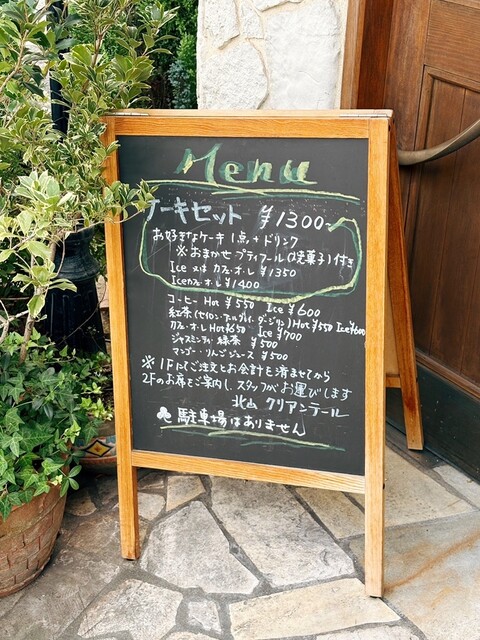 Menu
ケーキセット ¥1300-
お好きなケーキ1点+ドリンク
※おまかせプティフール(焼菓子)付き
Ice 又は カフェ・オ・レ ¥1350
Iceカフェ・オ・レ ¥1400
コーヒー Hot ¥550 Ice ¥600
紅茶(セイロン・アールグレイ・ダージリン) Hot ¥550 Ice ¥600
カフェ・オ・レ Hot ¥650 Ice ¥700
ジャスミンティ・緑茶 ¥500
マンゴー・りんごジュース ¥500
※1Fにてご注文とお会計を済ませてから
2Fのお席をご案内し、スタッフがお運びします
北山 クリアンテール
♣駐車場はありません